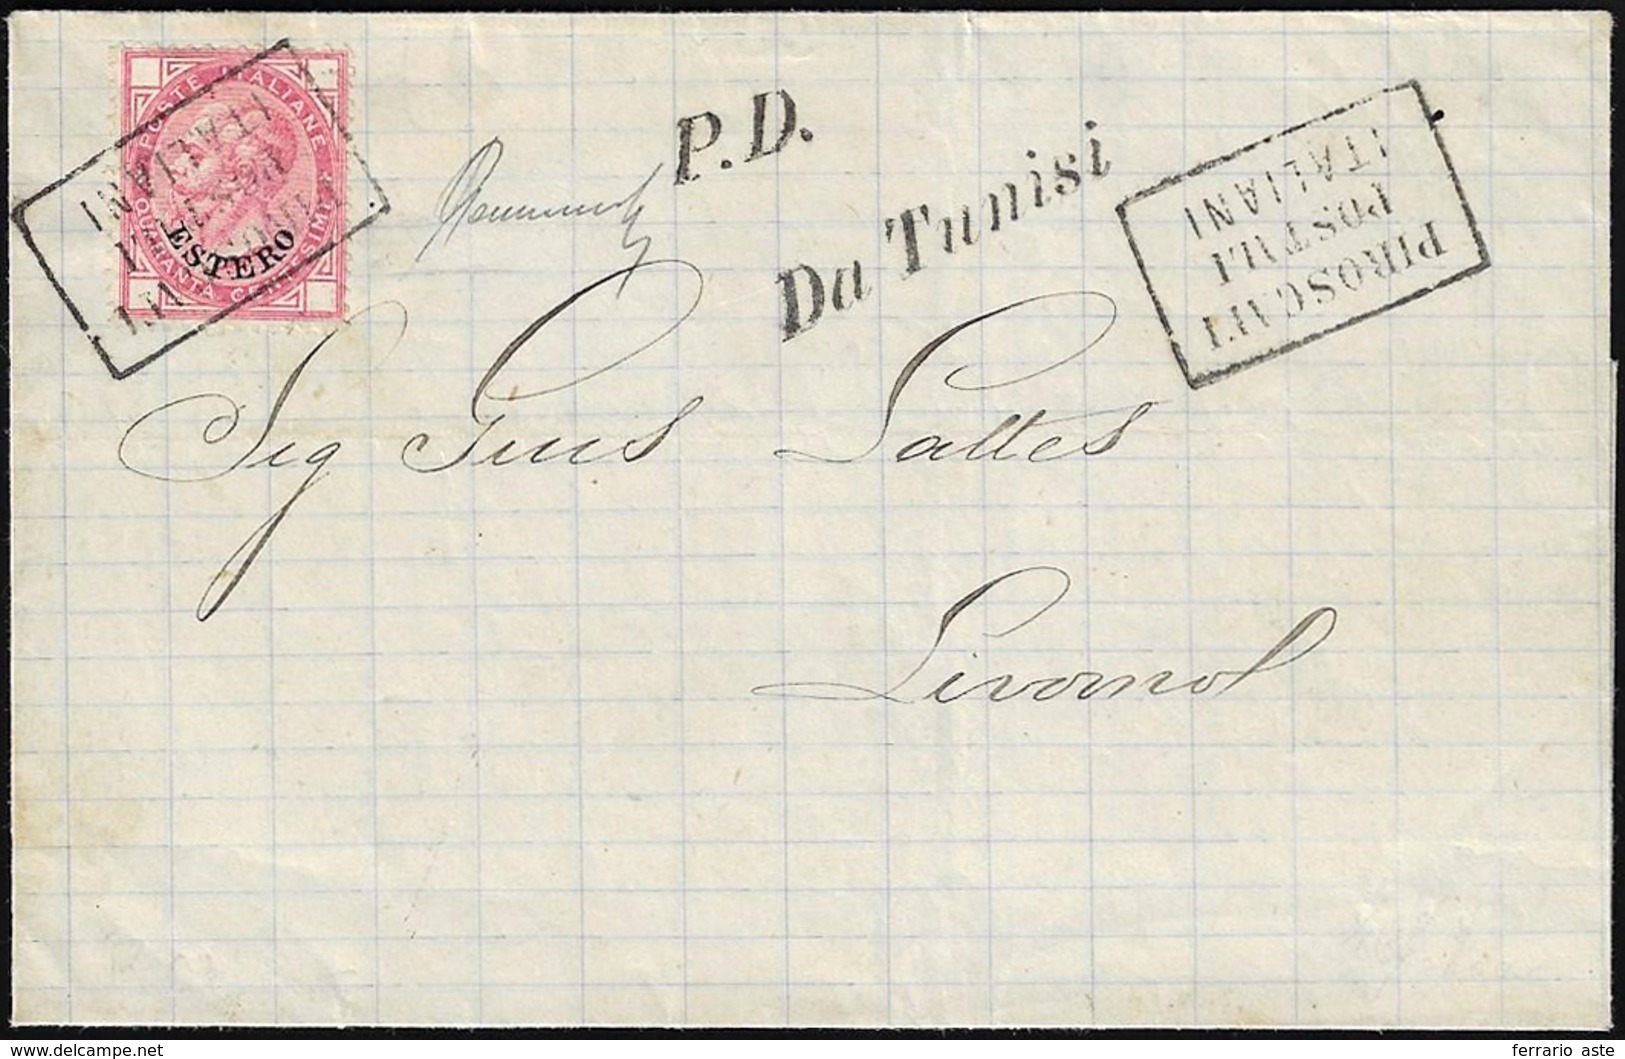 POSTE ITALIANE
QUARANTA CENTESIMI
ESTERO
PIROSCAFI
POSTALI
ITALIANI
P.D.
Da Tunisi
PIROSCAFI
POSTALI
ITALIANI
Sig
Livorno
delcampe.net
ferrario aste